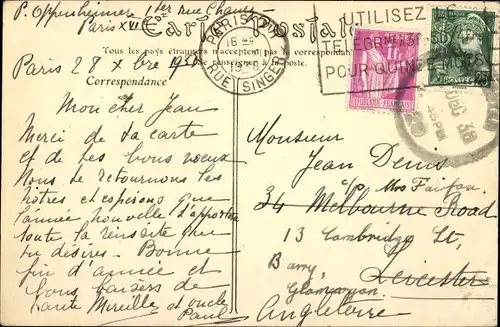 P. Oppenheimer 1 bis rue Chanez
Paris XVI
Carte Postale
Tous les pays étrangers n'acceptent pas la correspondance
se renseigner à la poste.
Paris 28 Xbre 1938
Correspondance
Mon cher Jean
Merci de ta carte
et de tes bons voeux
Nous te retournons les
nôtres et espérons que
l'année nouvelle t'apportera
toute la réussite que
tu désires. Bonne
fin d'année et
bons baisers de
tante Mireille et oncle
Paul
PARIS
RUE SINGER
UTILISEZ
POUR QUINZE MOTS
REPUBLIQUE FRANÇAISE
POSTES
25
Monsieur
Jean Denis
c/o Mrs Fairfax
34 Melbourne Road
13 Cambridge St,
Barry, Leicester
Glamorgan
Angleterre